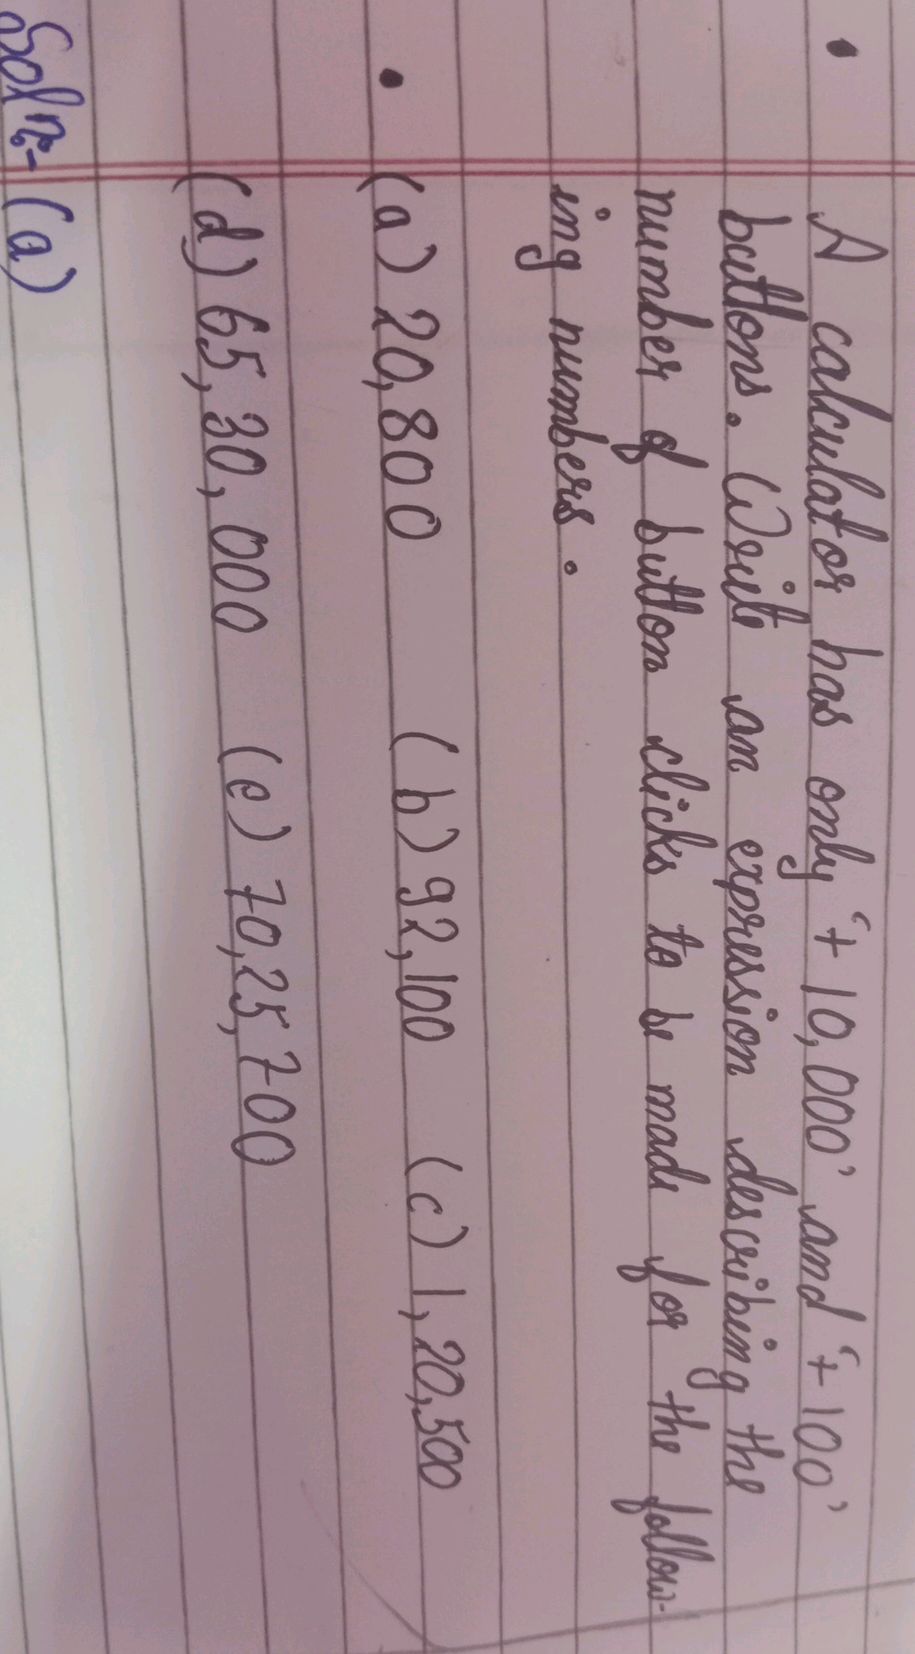 A calculator has only '+ 10,000' and '+ 100'
buttons. Write an expression describing the
number of button clicks to be made for the follow-
ing numbers.
(a) 20,800 (b) 92,100 (c) 1,20,500
(d) 65,30,000 (e) 70,25,700
Soln:- (a)